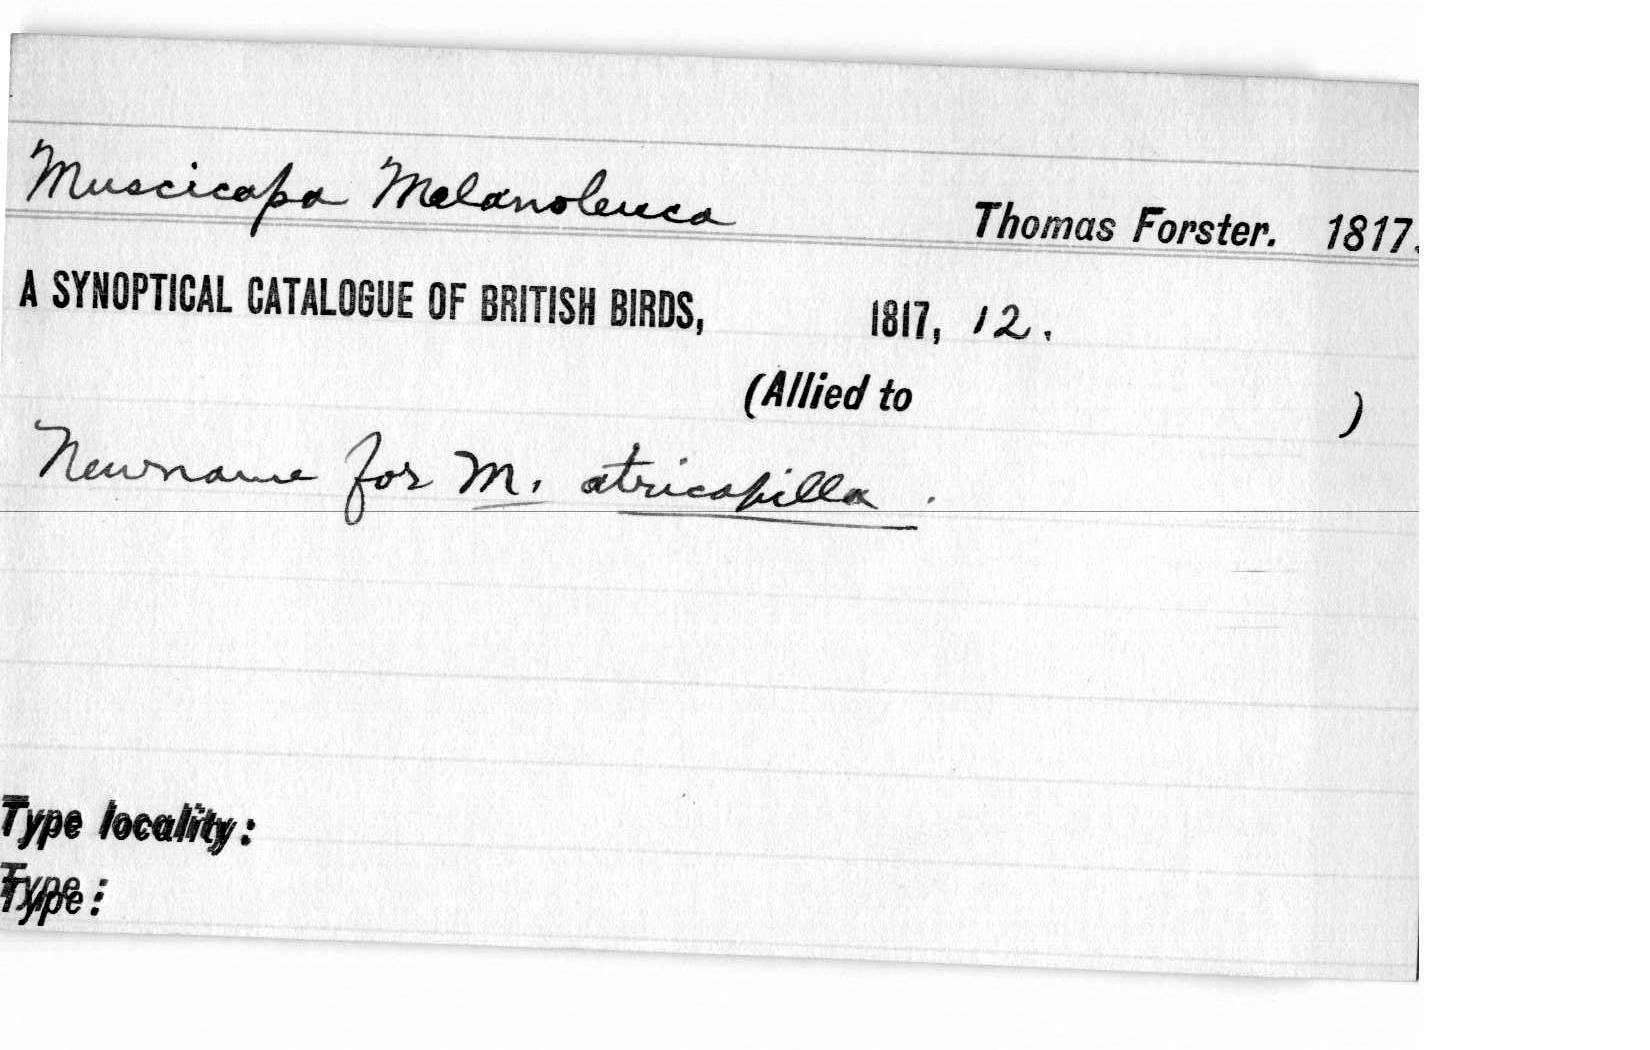 Muscicapa Melanoleuca Thomas Forster. 1817.
A SYNOPTICAL CATALOGUE OF BRITISH BIRDS, 1817, 12.
(Allied to )
New name for M. atricapilla.
Type locality:
Type: